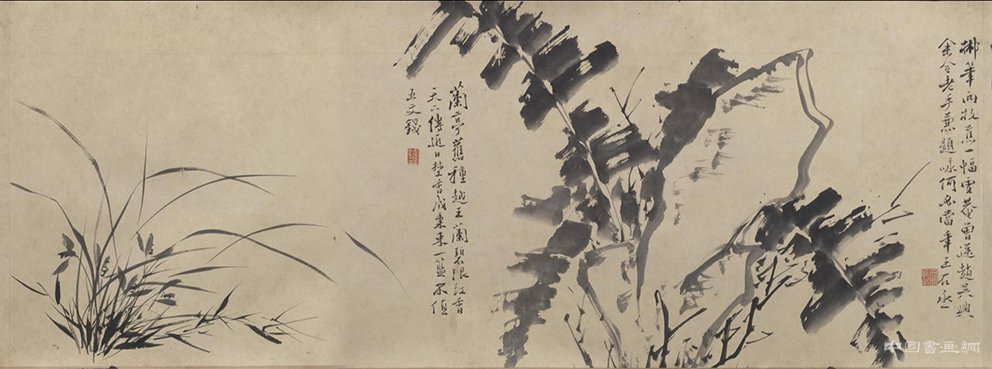 筆兩枝蕉一幅雪菴曾送趙吳興
老手題咏何必當年王右丞
蘭亭舊種越王蘭碧浪紅香
天下傳近日野香成秉束一籃不值
五文錢
中国書畫網